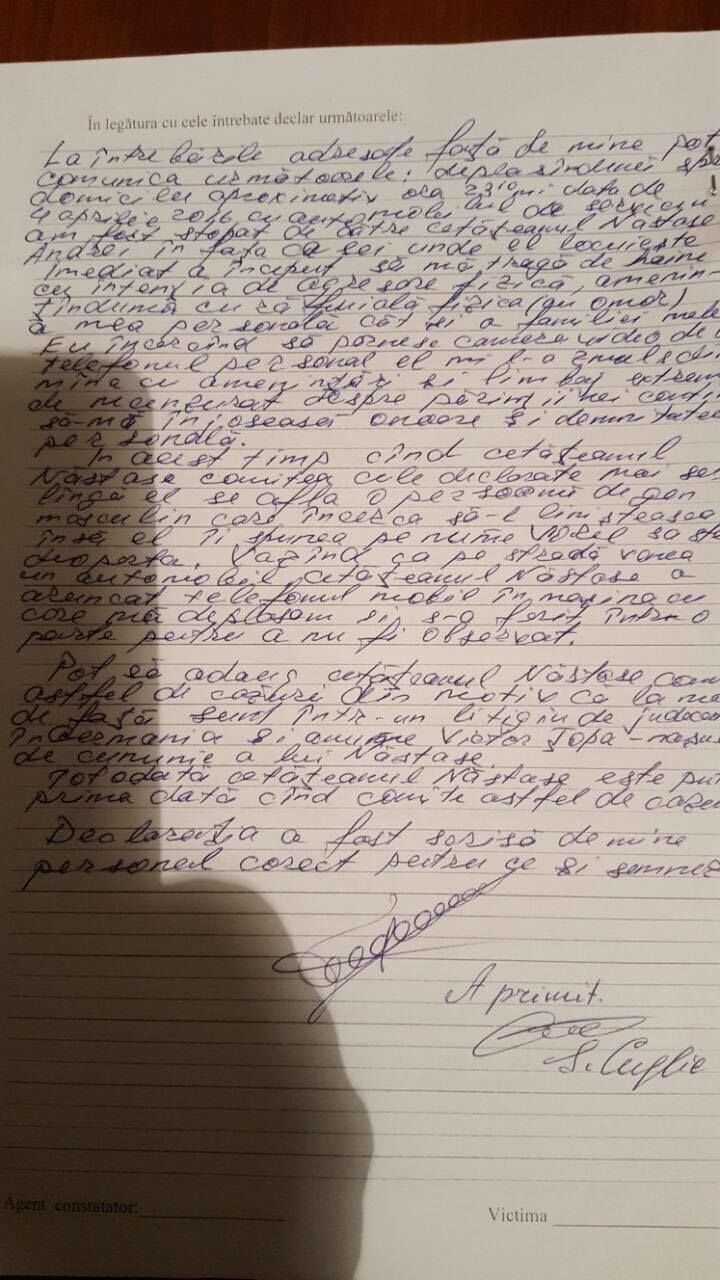 În legătura cu cele întrebate declar următoarele:
La întrebările adresate față de mine pot
comunica următoarele: deplasîndumă spre
domiciliu aproximativ ora 23 10 mi data de
4 aprilie 2016 cu automobilul de serviciu
am fost stopat de către cetățeanul Năstase
Andrei în fața casei unde el locuiește
imediat a început să mă tragă de haine
cu intenția de agresare fizică, amenin-
țîndumă cu fizica (au omor)
a mea personala cât și a familiei mele
Eu încercînd să pornesc camera video de
telefonul personal el mi l-a zmuls din
mîna cu amenințări și limbaj extrem
de necenzurat despre părinții mei
să-mă înjosească onoare și demnitatea
personală.
In acest timp cînd cetățeanul
Năstase comitea cele declarate mai sus
lîngă el se afla o persoană de gen
masculin care încerca să-l liniștească
însă el îi spunea pe nume Viorel să stea
deoparte. Vazînd ca pe stradă venea
un automobil cetățeanul Năstase a
aruncat telefonul mobil în mașina cu
care mă deplasam și s-a ferit într-o
parte pentru a nu fi observat.
Pot să adaug cetățeanul Năstase
astfel de cazuri din motiv că la
de față sunt într-un litigiu de judecată
în Germania și anume Victor Țopa - nașul
de cununie a lui Năstase.
Totodată cetățeanul Năstase este
prima dată cînd comite astfel de
Declarația a fost scrisă de mine
personal corect pentru ce și semnez
A primit.
S.
Agent constatator:
Victima